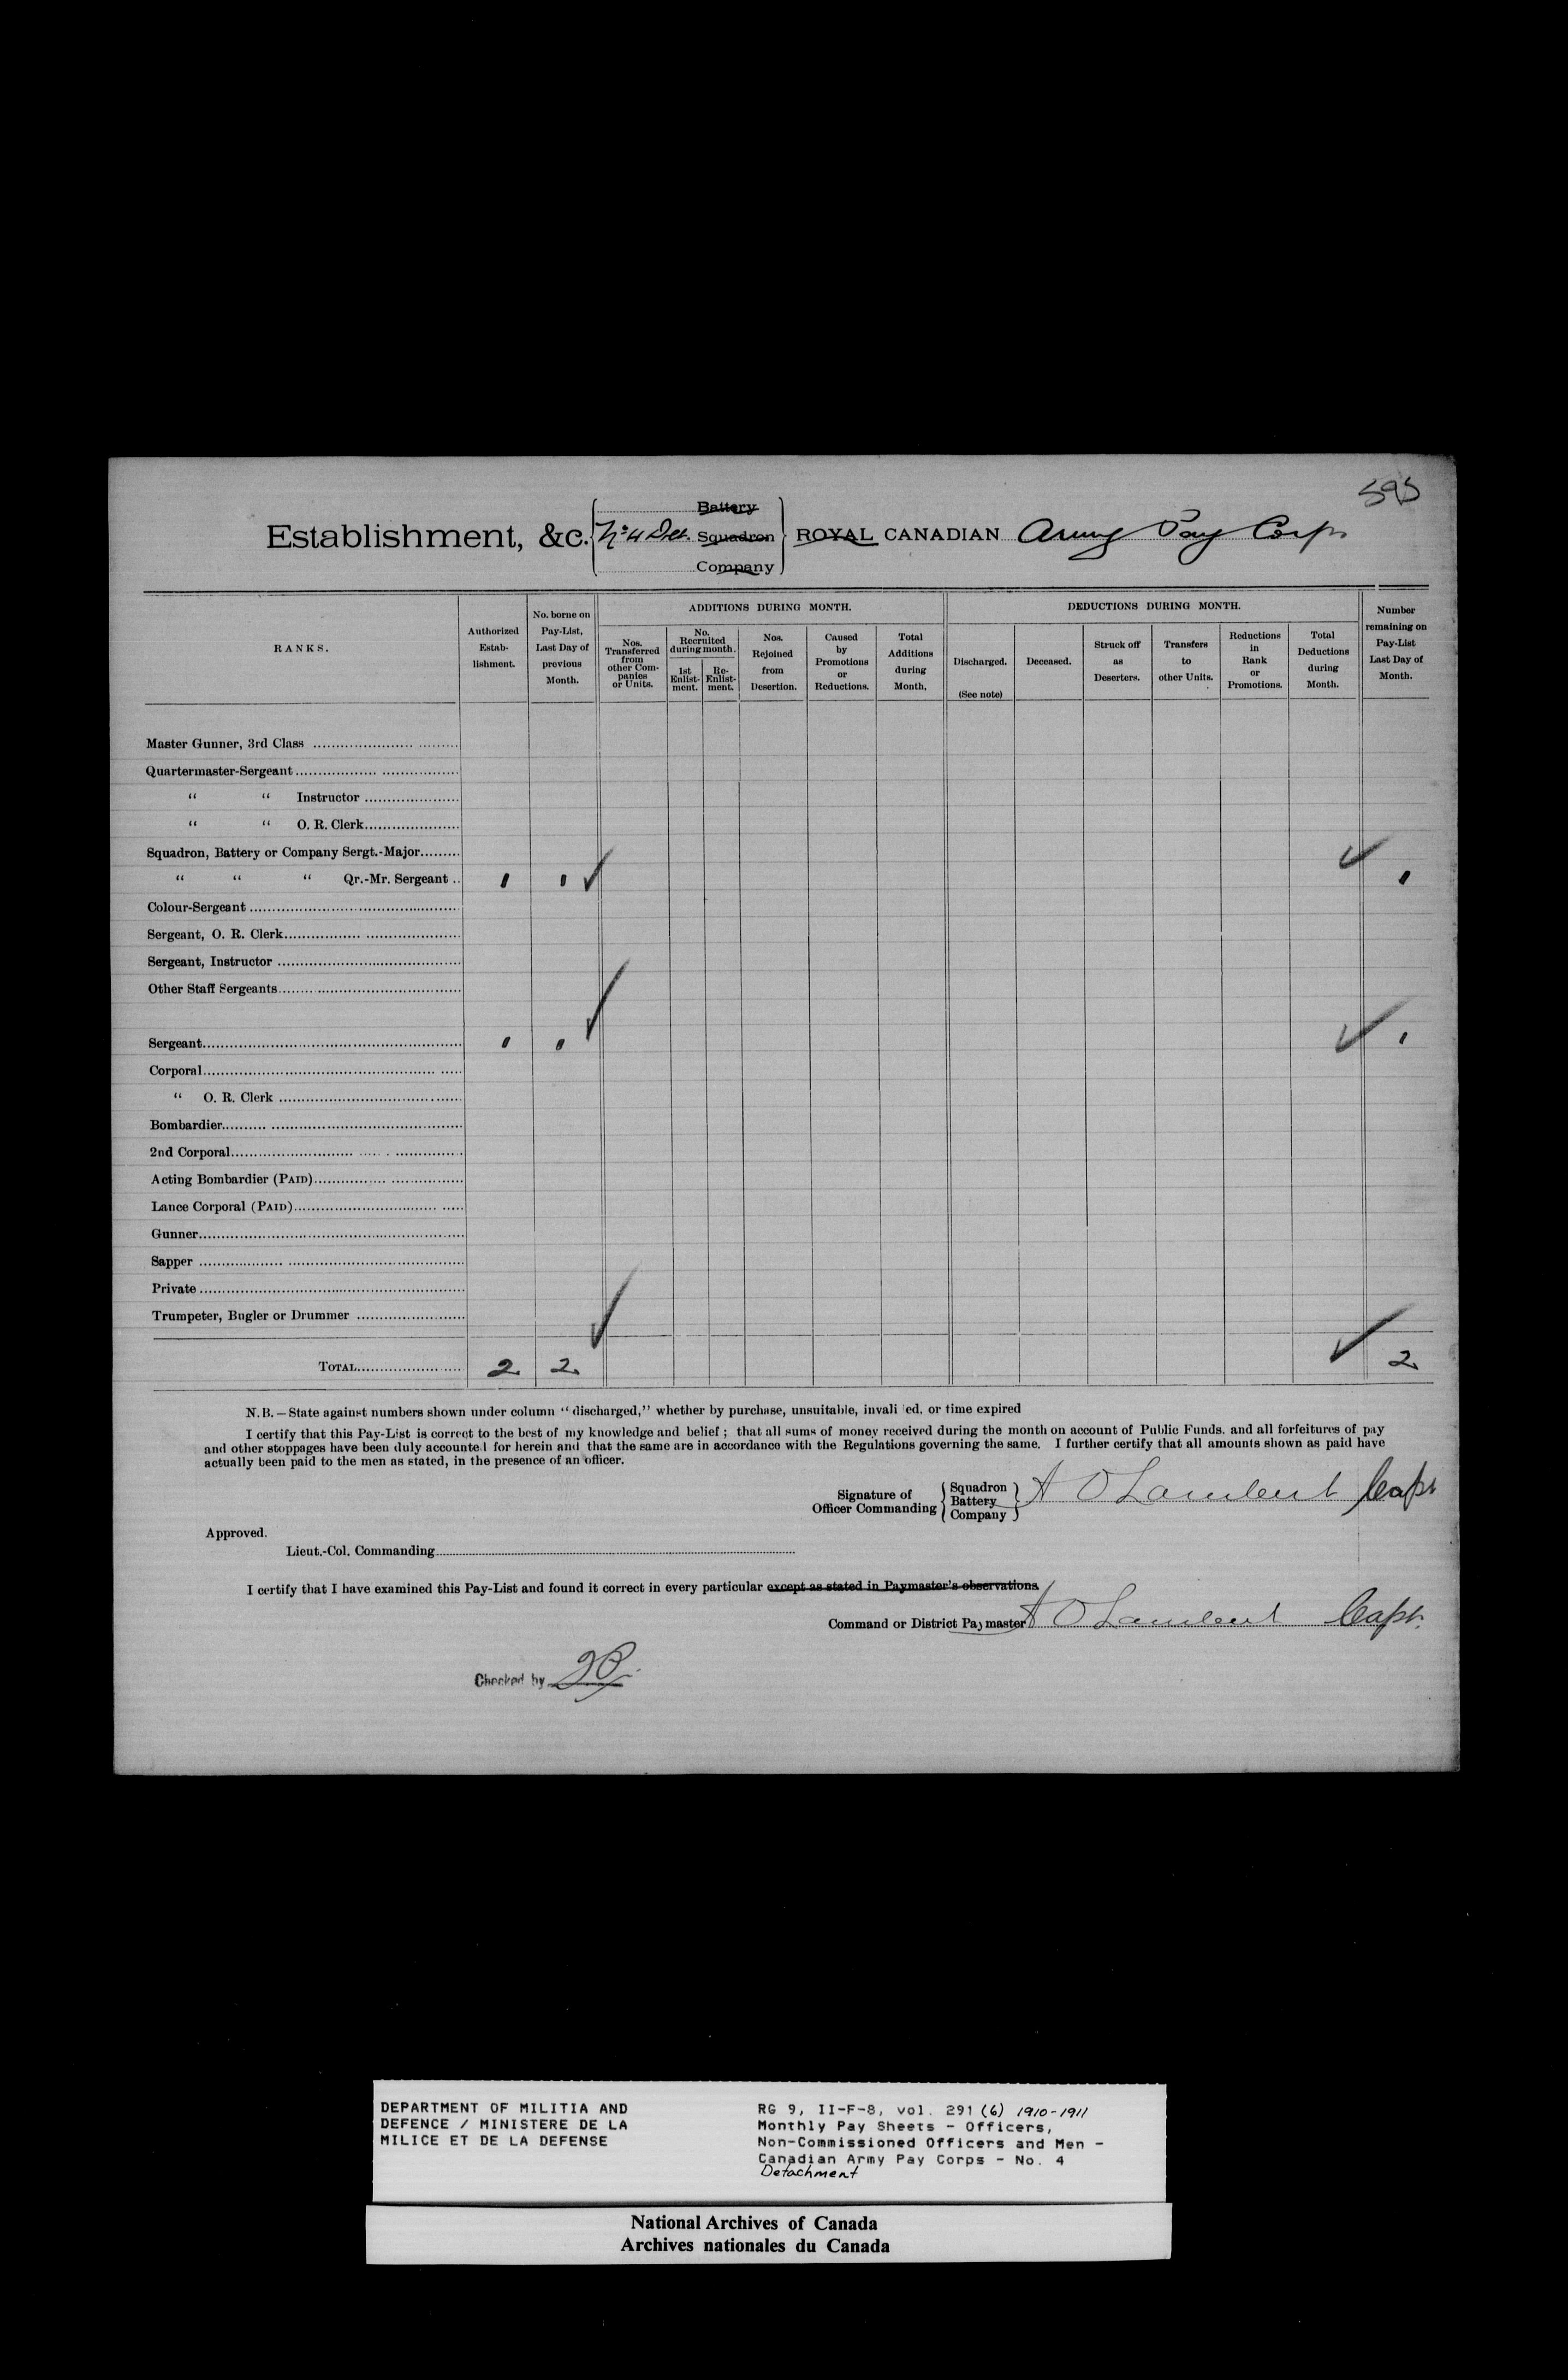 595
Establishment, &c. No 4 Det. Battery Squadron Company ROYAL CANADIAN Army Pay Corps
RANKS.
Authorized Estab- lishment.
No. borne on Pay-List, Last Day of previous Month.
ADDITIONS DURING MONTH.
Nos. Transferred from other Com- panies or Units.
No. Recruited during month.
1st Enlist- ment.
Re- Enlist- ment.
Nos. Rejoined from Desertion.
Caused by Promotions or Reductions.
Total Additions during Month.
DEDUCTIONS DURING MONTH.
Discharged. (See note)
Deceased.
Struck off as Deserters.
Transfers to other Units.
Reductions in Rank or Promotions.
Total Deductions during Month.
Number remaining on Pay-List Last Day of Month.
Master Gunner, 3rd Class
Quartermaster-Sergeant
" " Instructor
" " O. R. Clerk
Squadron, Battery or Company Sergt.-Major
" " " Qr.-Mr. Sergeant 1 1 ✓ ✓ 1
Colour-Sergeant
Sergeant, O. R. Clerk
Sergeant, Instructor
Other Staff Sergeants
Sergeant 1 1 ✓ ✓ 1
Corporal
" O. R. Clerk
Bombardier
2nd Corporal
Acting Bombardier (PAID)
Lance Corporal (PAID)
Gunner
Sapper
Private
Trumpeter, Bugler or Drummer
TOTAL 2 2 ✓ ✓ 2
N.B.—State against numbers shown under column "discharged," whether by purchase, unsuitable, invali ed, or time expired
I certify that this Pay-List is correct to the best of my knowledge and belief; that all sums of money received during the month on account of Public Funds, and all forfeitures of pay
and other stoppages have been duly accounted for herein and that the same are in accordance with the Regulations governing the same. I further certify that all amounts shown as paid have
actually been paid to the men as stated, in the presence of an officer.
Signature of Officer Commanding Squadron Battery Company A O Lambert Capt
Approved.
Lieut.-Col. Commanding
I certify that I have examined this Pay-List and found it correct in every particular except as stated in Paymaster's observations
Command or District Paymaster A O Lambert Capt.
Checked by
DEPARTMENT OF MILITIA AND
DEFENCE / MINISTERE DE LA
MILICE ET DE LA DEFENSE
RG 9, II-F-8, vol. 291 (6) 1910-1911
Monthly Pay Sheets - Officers,
Non-Commissioned Officers and Men -
Canadian Army Pay Corps - No. 4
Detachment
National Archives of Canada
Archives nationales du Canada